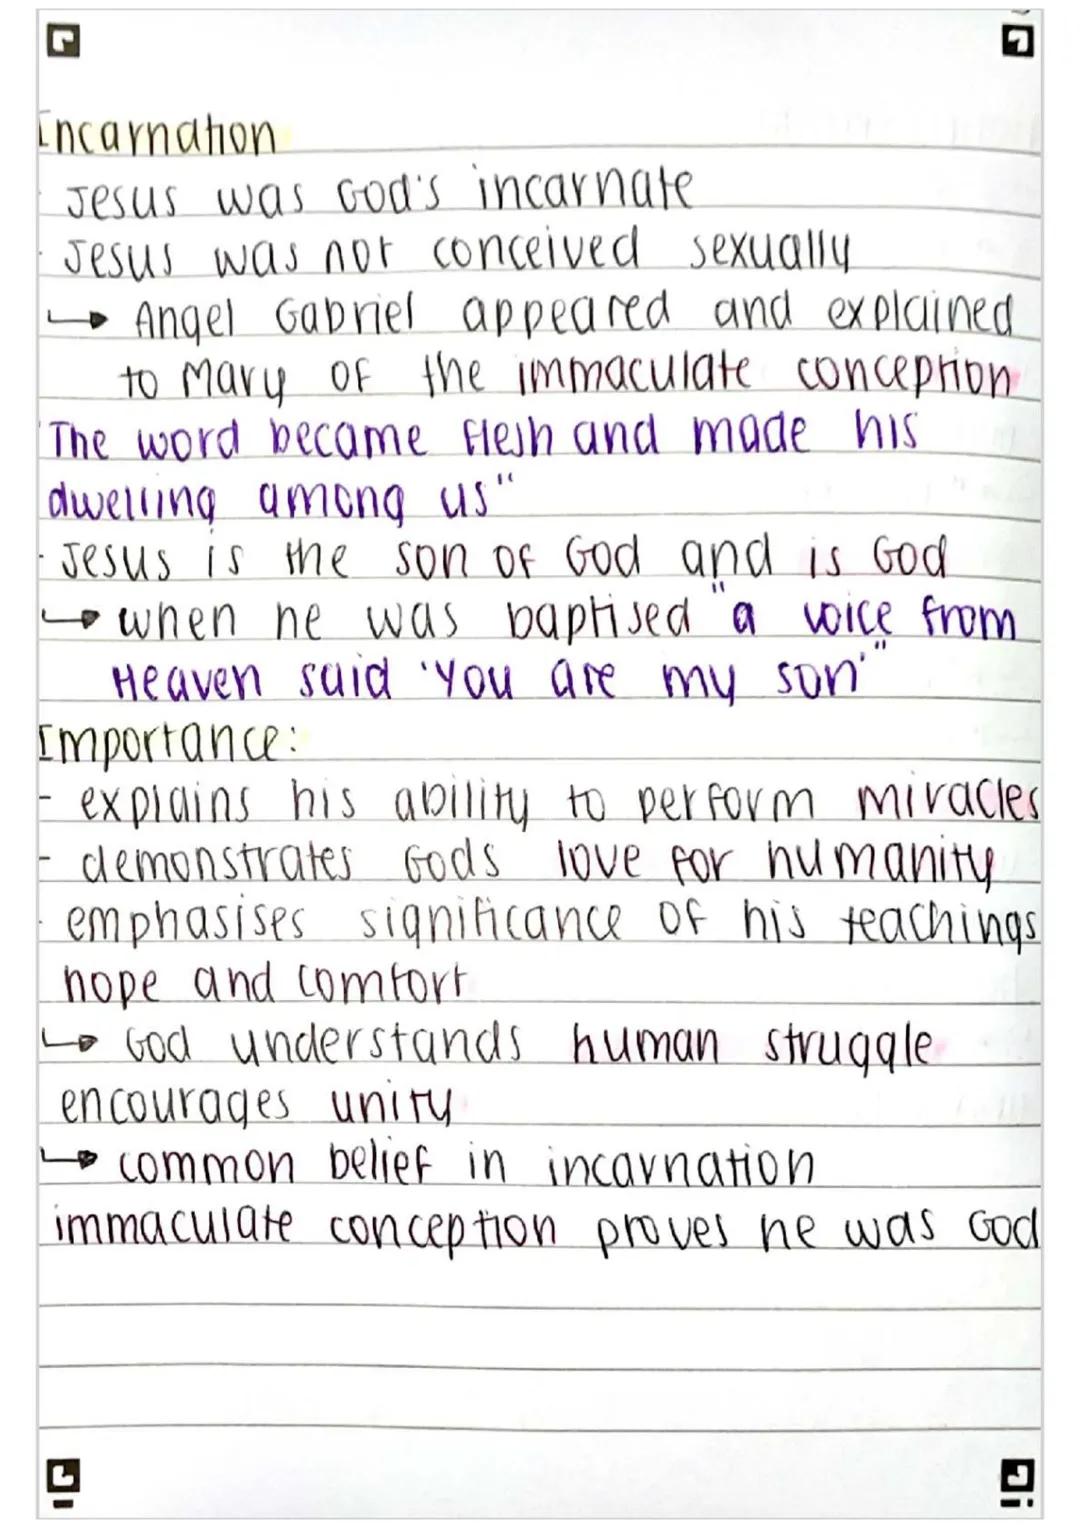 Incarnation
· Jesus was God's incarnate
· Jesus was not conceived sexually
↳ Angel Gabriel appeared and explained
to Mary of the immaculate conception
"The word became flesh and made his
dwelling among us"
· Jesus is the son of God and is God
↳ when he was baptised "a voice from
Heaven said 'you are my son'"
Importance:
- explains his ability to perform miracles
- demonstrates Gods love for humanity
· emphasises significance of his teachings
hope and comfort
↳ God understands human struggle
encourages unity
↳ common belief in incarnation
immaculate conception proves he was God